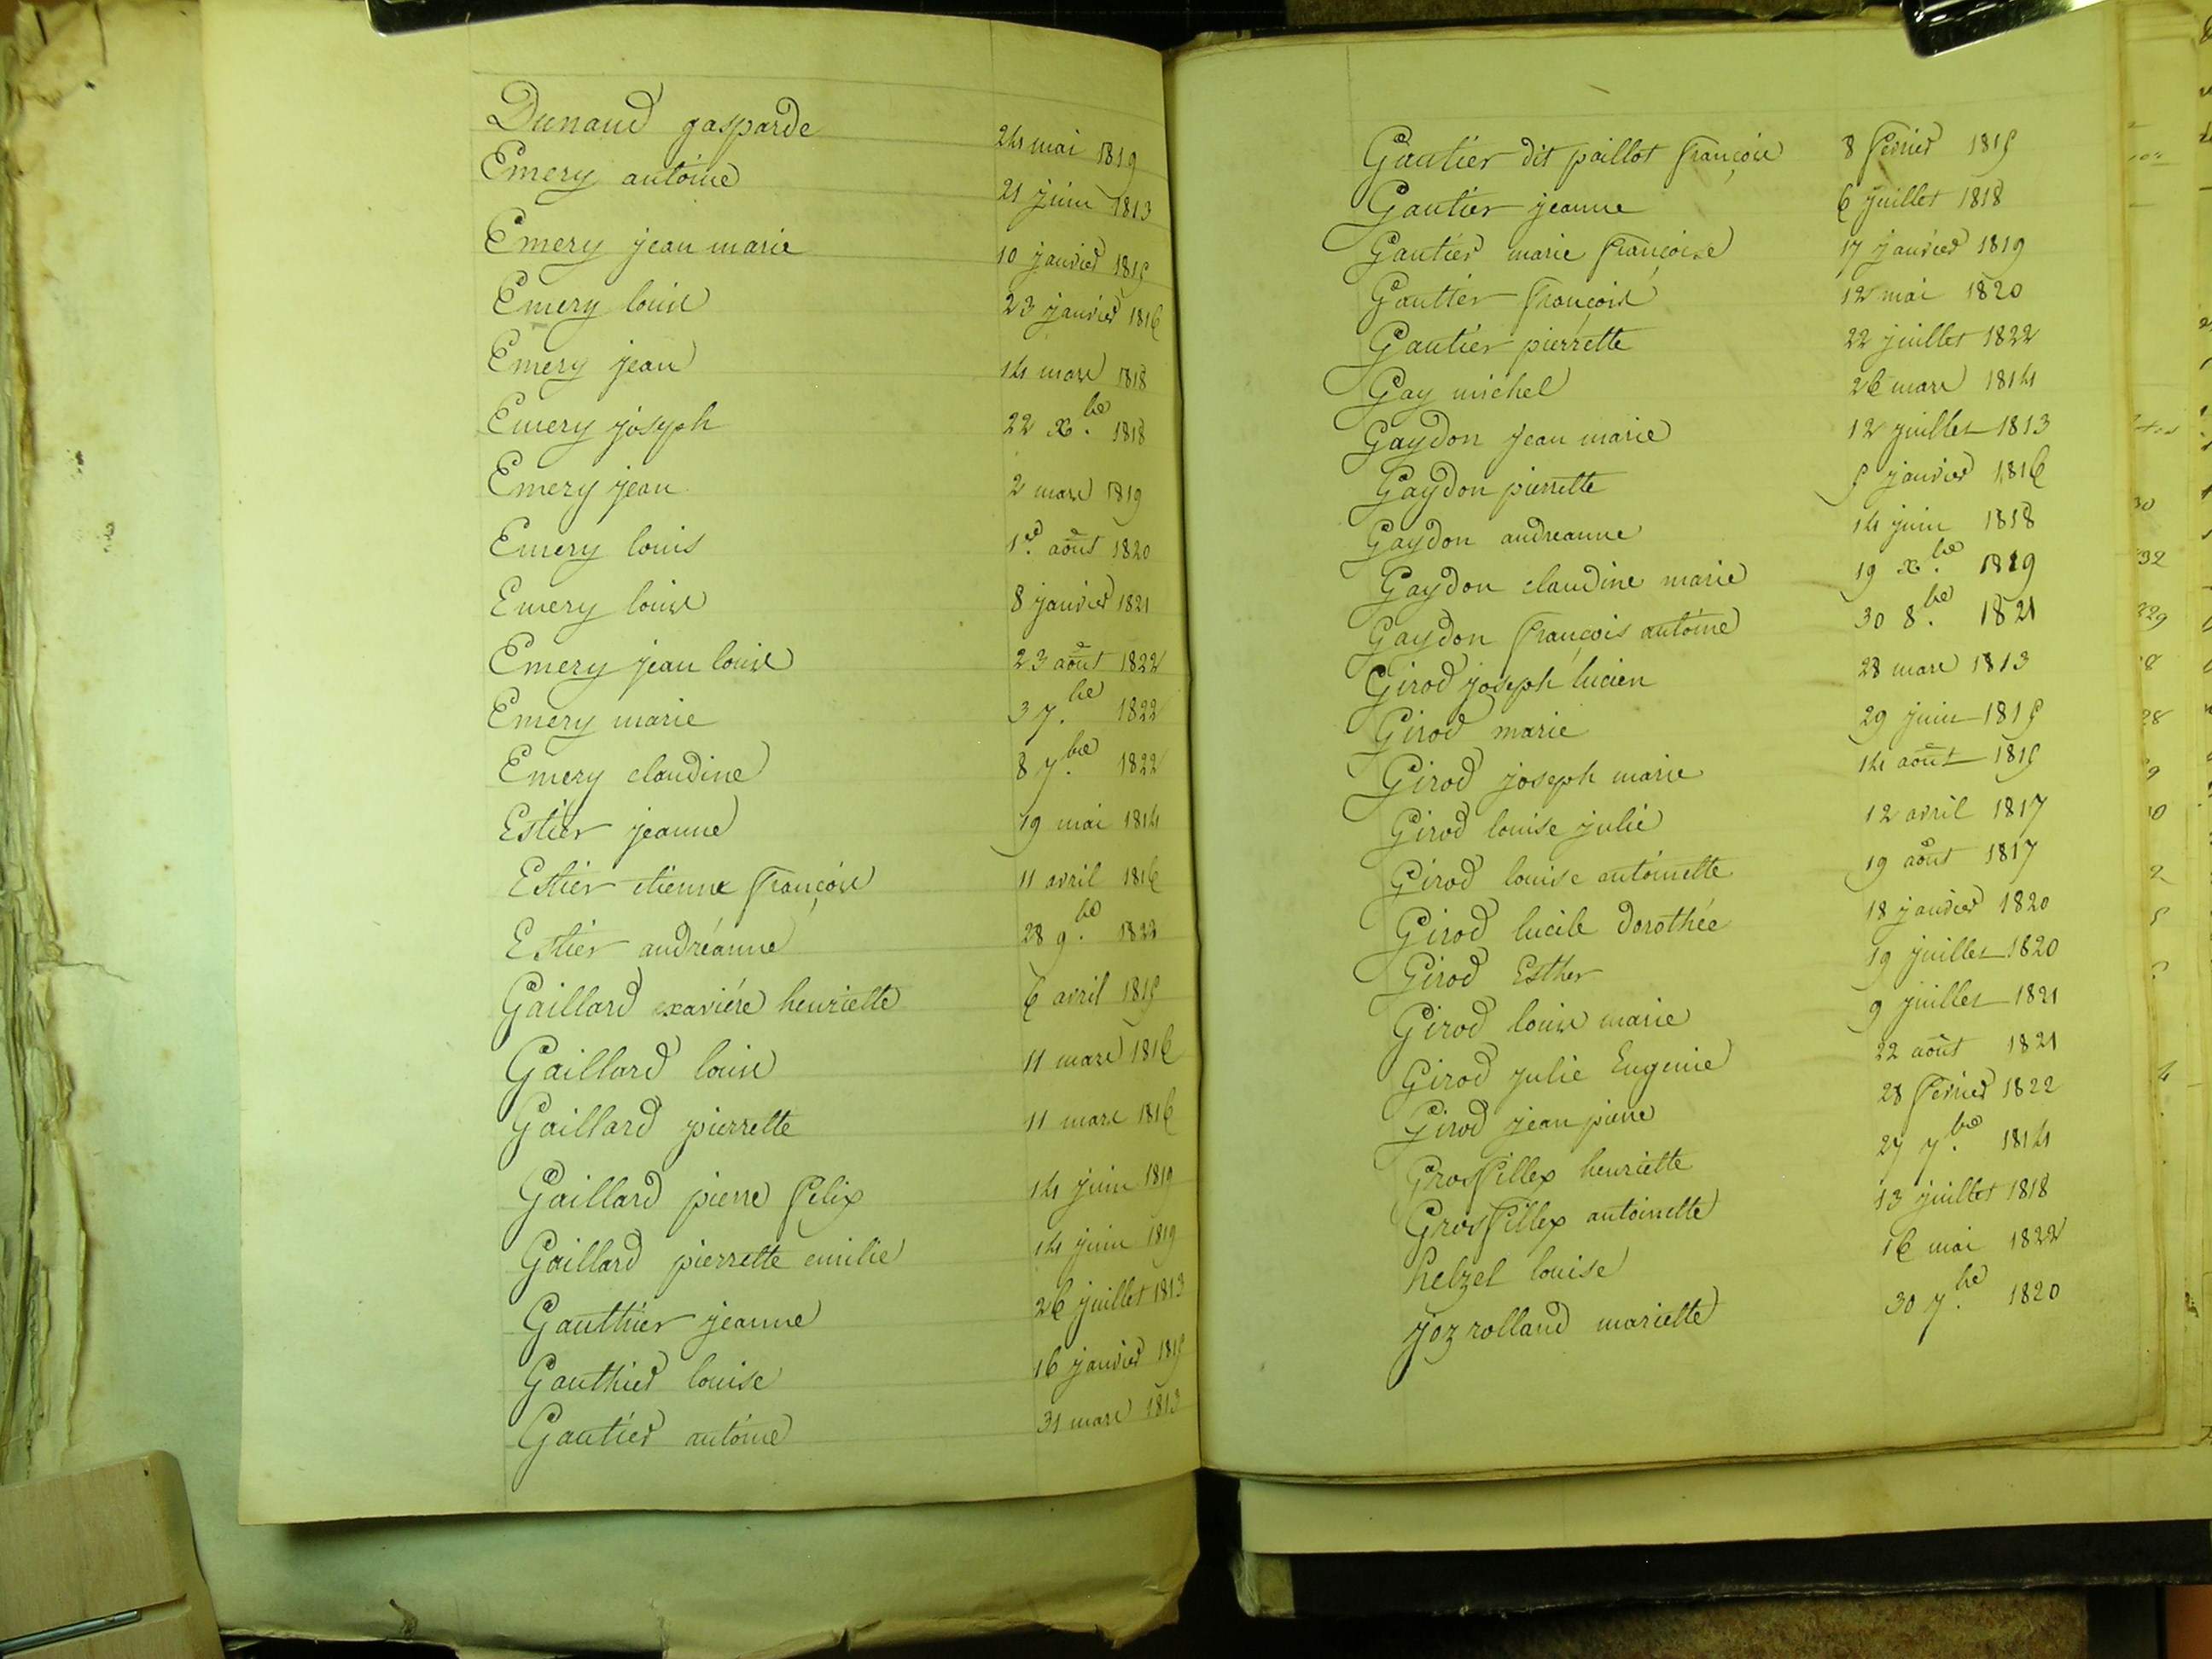 Dunand gasparde 24 mai 1819
Emery antoine 21 juin 1813
Emery jean marie 10 janvier 1815
Emery louise 23 janvier 1816
Emery jean 14 mars 1818
Emery joseph 22 Xbre 1818
Emery jean 2 mars 1819
Emery louis 1er août 1820
Emery louise 8 janvier 1821
Emery jean louis 23 août 1822
Emery marie 3 7.bre 1822
Emery claudine 8 7bre 1822
Estier jeanne 19 mai 1814
Estier etienne françois 11 avril 1816
Estier andréanne 28 9.bre 1822
Gaillard xavière henriette 6 avril 1815
Gaillard louise 11 mars 1816
Gaillard pierrette 11 mars 1816
Gaillard pierre felix 14 juin 1819
Gaillard pierrette emilie 14 juin 1819
Gauthier jeanne 26 juillet 1813
Gauthier louise 16 janvier 1815
Gautier antoine 31 mars 1813
Gautier dit paillot françois 8 fevrier 1815
Gautier jeanne 6 juillet 1818
Gautier marie françoise 17 janvier 1819
Gautier françois 12 mai 1820
Gautier pierrette 22 juillet 1822
Gay michel 26 mars 1814
Gaydon jean marie 12 juillet 1813
Gaydon pierrette 5 janvier 1816
Gaydon andreanne 14 juin 1818
Gaydon claudine marie 19 Xbre 1819
Gaydon françois antoine 30 8.bre 1821
Girod joseph lucien 28 mars 1813
Girod marie 29 juin 1815
Girod joseph marie 14 août 1815
Girod louise julie 12 avril 1817
Girod louise antoinette 19 août 1817
Girod lucile dorothée 18 janvier 1820
Girod Esther 19 juillet 1820
Girod louise marie 9 juillet 1821
Girod julie Eugenie 22 août 1821
Girod jean pierre 28 fevrier 1822
Grosfillex henriette 27 7bre 1814
Grosfillex antoinette 13 juillet 1818
helzel louise 16 mai 1822
joz rolland mariette 30 7.bre 1820